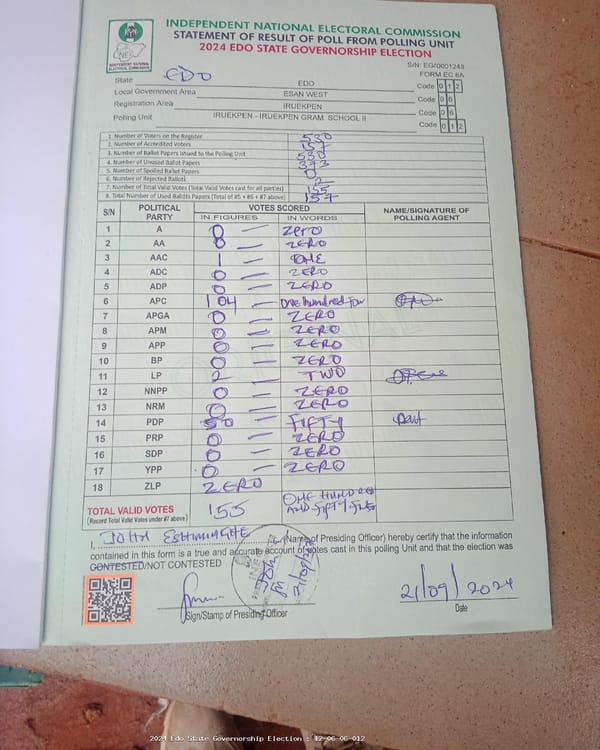 INDEPENDENT NATIONAL ELECTORAL COMMISSION
STATEMENT OF RESULT OF POLL FROM POLLING UNIT
2024 EDO STATE GOVERNORSHIP ELECTION
S/N: EG/0001243
FORM EC 8A
INDEPENDENT NATIONAL ELECTORAL COMMISSION
State EDO EDO Code 012
Local Government Area ESAN WEST Code 06
Registration Area IRUEKPEN Code 06
Polling Unit IRUEKPEN - IRUEKPEN GRAM. SCHOOL II Code 012
1. Number of Voters on the Register 530
2. Number of Accredited Voters 157
3. Number of Ballot Papers Issued to the Polling Unit 530
4. Number of Unused Ballot Papers 373
5. Number of Spoiled Ballot Papers 0
6. Number of Rejected Ballots 2
7. Number of Total Valid Votes (Total Valid Votes cast for all parties) 155
8. Total Number of Used Ballots Papers (Total of #5 + #6 + #7 above) 157
S/N POLITICAL PARTY VOTES SCORED NAME/SIGNATURE OF POLLING AGENT
IN FIGURES IN WORDS
1 A 0 — zero
2 AA 0 — ZERO
3 AAC 1 — ONE
4 ADC 0 — ZERO
5 ADP 0 — ZERO
6 APC 104 — One hundred for
7 APGA 0 — ZERO
8 APM 0 — ZERO
9 APP 0 — ZERO
10 BP 0 — ZERO
11 LP 2 — TWO
12 NNPP 0 — ZERO
13 NRM 0 — ZERO
14 PDP 50 — FIFTY
15 PRP 0 — ZERO
16 SDP 0 — ZERO
17 YPP 0 — ZERO
18 ZLP ZERO
TOTAL VALID VOTES 155 ONE HUNDRED
(Record Total Valid Votes under #7 above) AND FIFTY FIVE
I, JOHN (Name of Presiding Officer) hereby certify that the information
contained in this form is a true and accurate account of votes cast in this polling Unit and that the election was
CONTESTED/NOT CONTESTED
21/09/2024
Sign/Stamp of Presiding Officer Date
2024 Edo State Governorship Election : 12-06-06-012